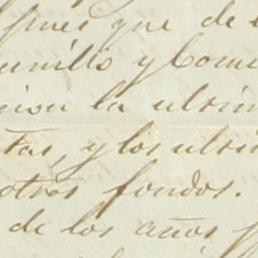 pues que de
y Com
cion la ultim
tas, y los ultim
otros fondos.
de los años p